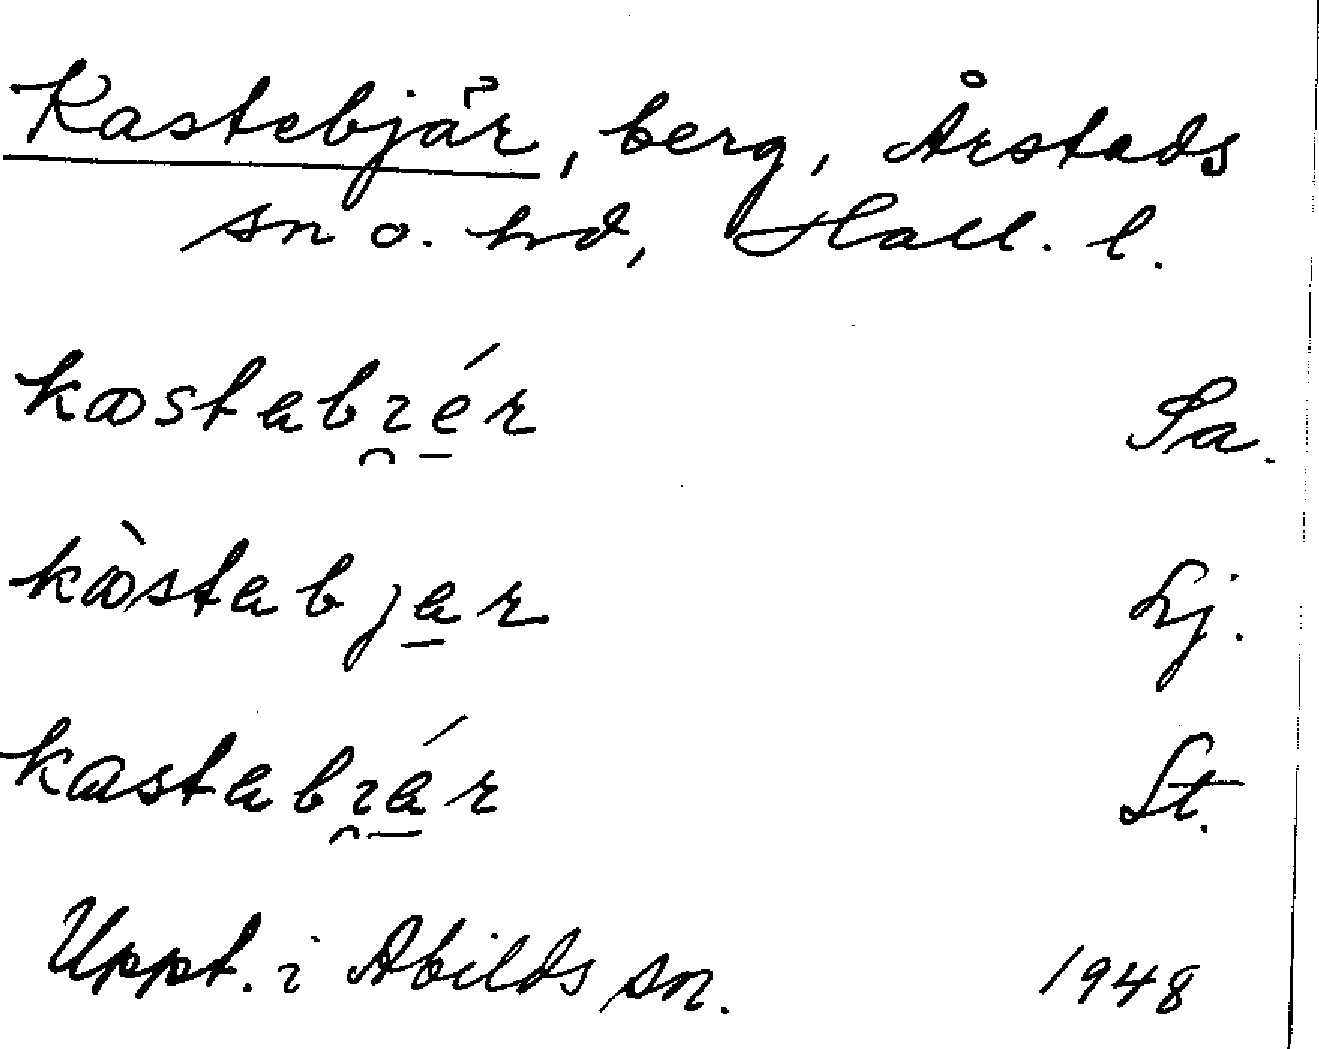 Kastebjär, berg, Årstads
sn o. hd, Hall. l.
kastabɪ̯ér Sa.
kàstabjar Lj.
kastabɪ̯ár St.
Uppt. i Abilds sn. 1948